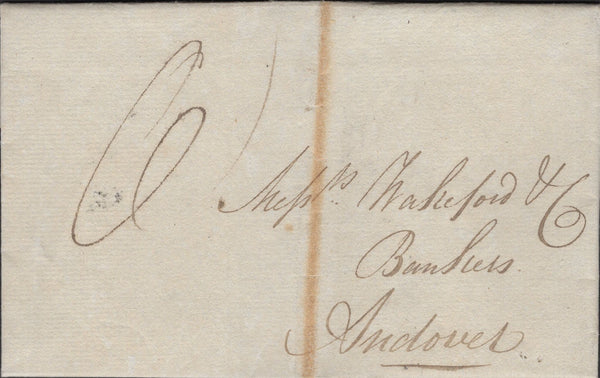 6
Messrs Wakeford & Co
Bankers
Andover